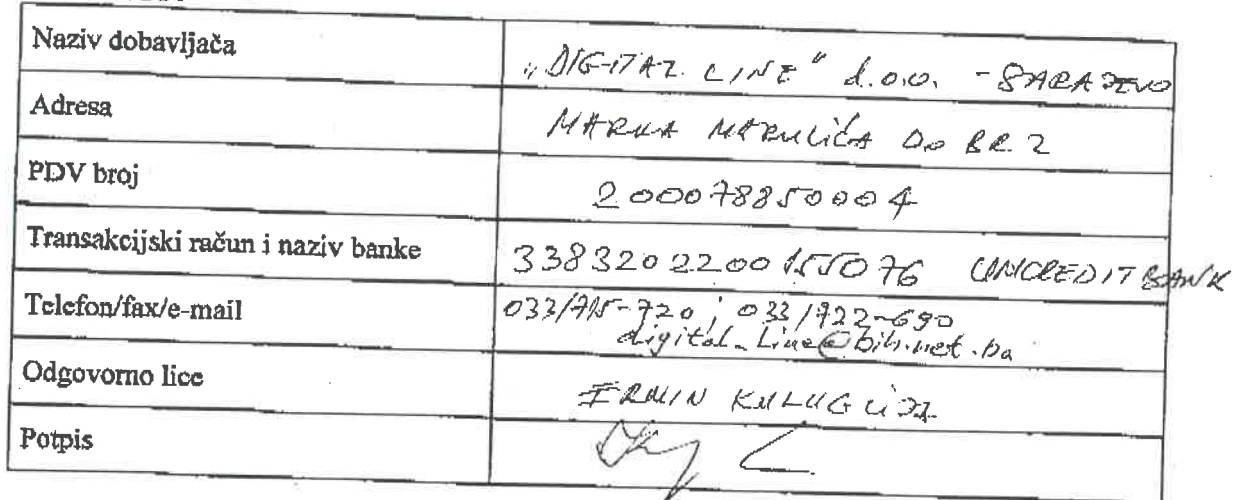 Naziv dobavljača
"DIGITAL LINE" d.o.o. - SARAJEVO
Adresa
MARKA MARULIĆA DO BR. 2
PDV broj
200078850004
Transakcijski račun i naziv banke
3383202200155076 UNICREDIT BANK
Telefon/fax/e-mail
033/715-720; 033/722-690
digital_line@bih.net.ba
Odgovorno lice
ERMIN
Potpis